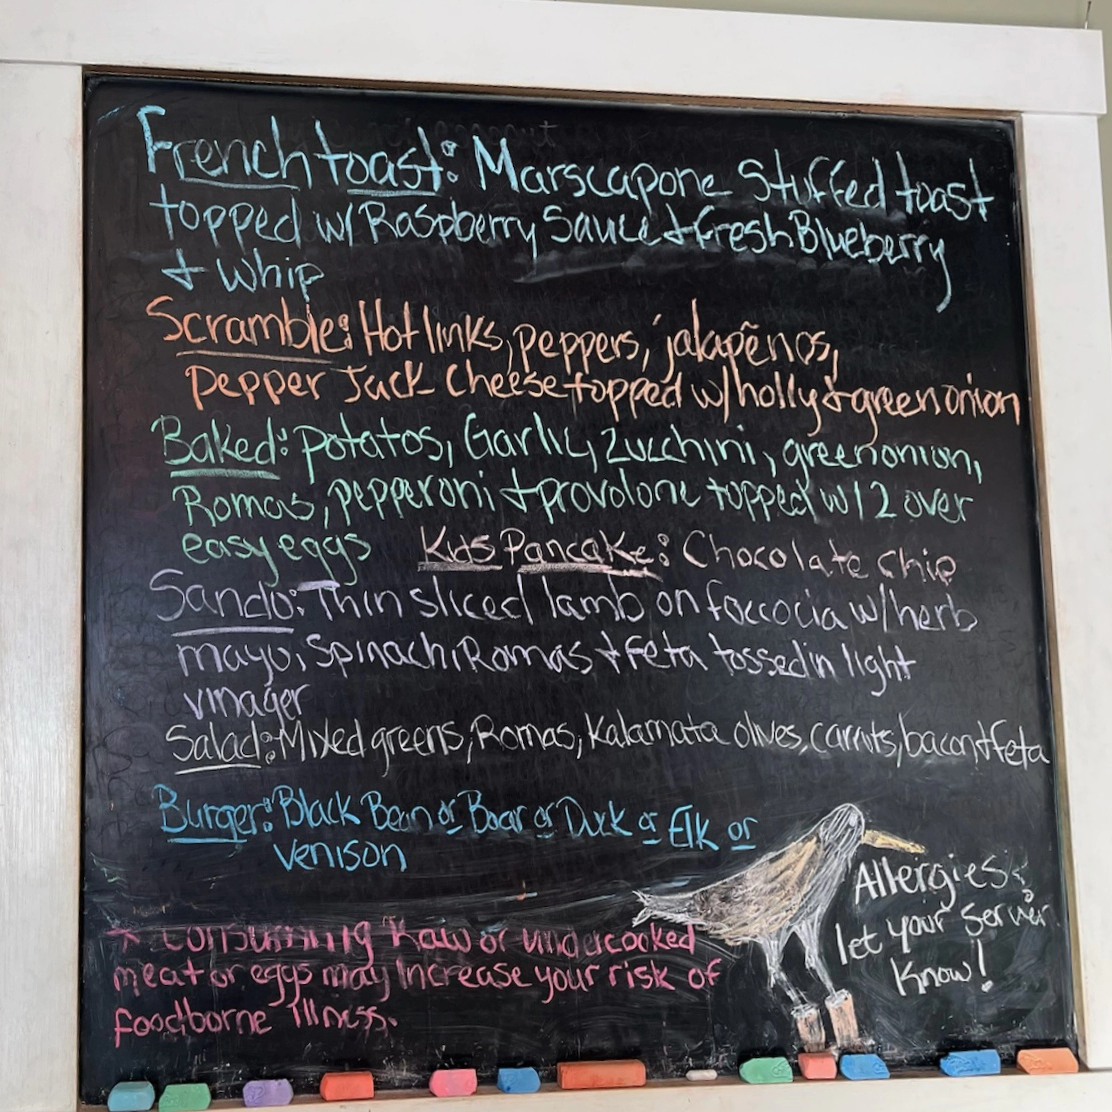 French toast: Marscapone Stuffed toast
topped w/ Raspberry Sauce + Fresh Blueberry
+ Whip
Scramble: Hot links, peppers, jalapēnos,
Pepper Jack Cheese topped w/ holly + green onion
Baked: Potatos, Garlic, Zucchini, green onion,
Romas, pepperoni + provolone topped w/ 2 over
easy eggs
Kids Pancake: Chocolate Chip
Sando: Thin sliced lamb on foccocia w/ herb
mayo, Spinach, Romas + Feta tossed in light
vinager
Salad: Mixed greens, Romas, Kalamata olives, carrots, bacon + feta
Burger: Black Bean or Boar or Duck or Elk or
Venison
Allergies?
let your server
know!
* Consuming Raw or undercooked
meat or eggs may increase your risk of
foodborne Illness.